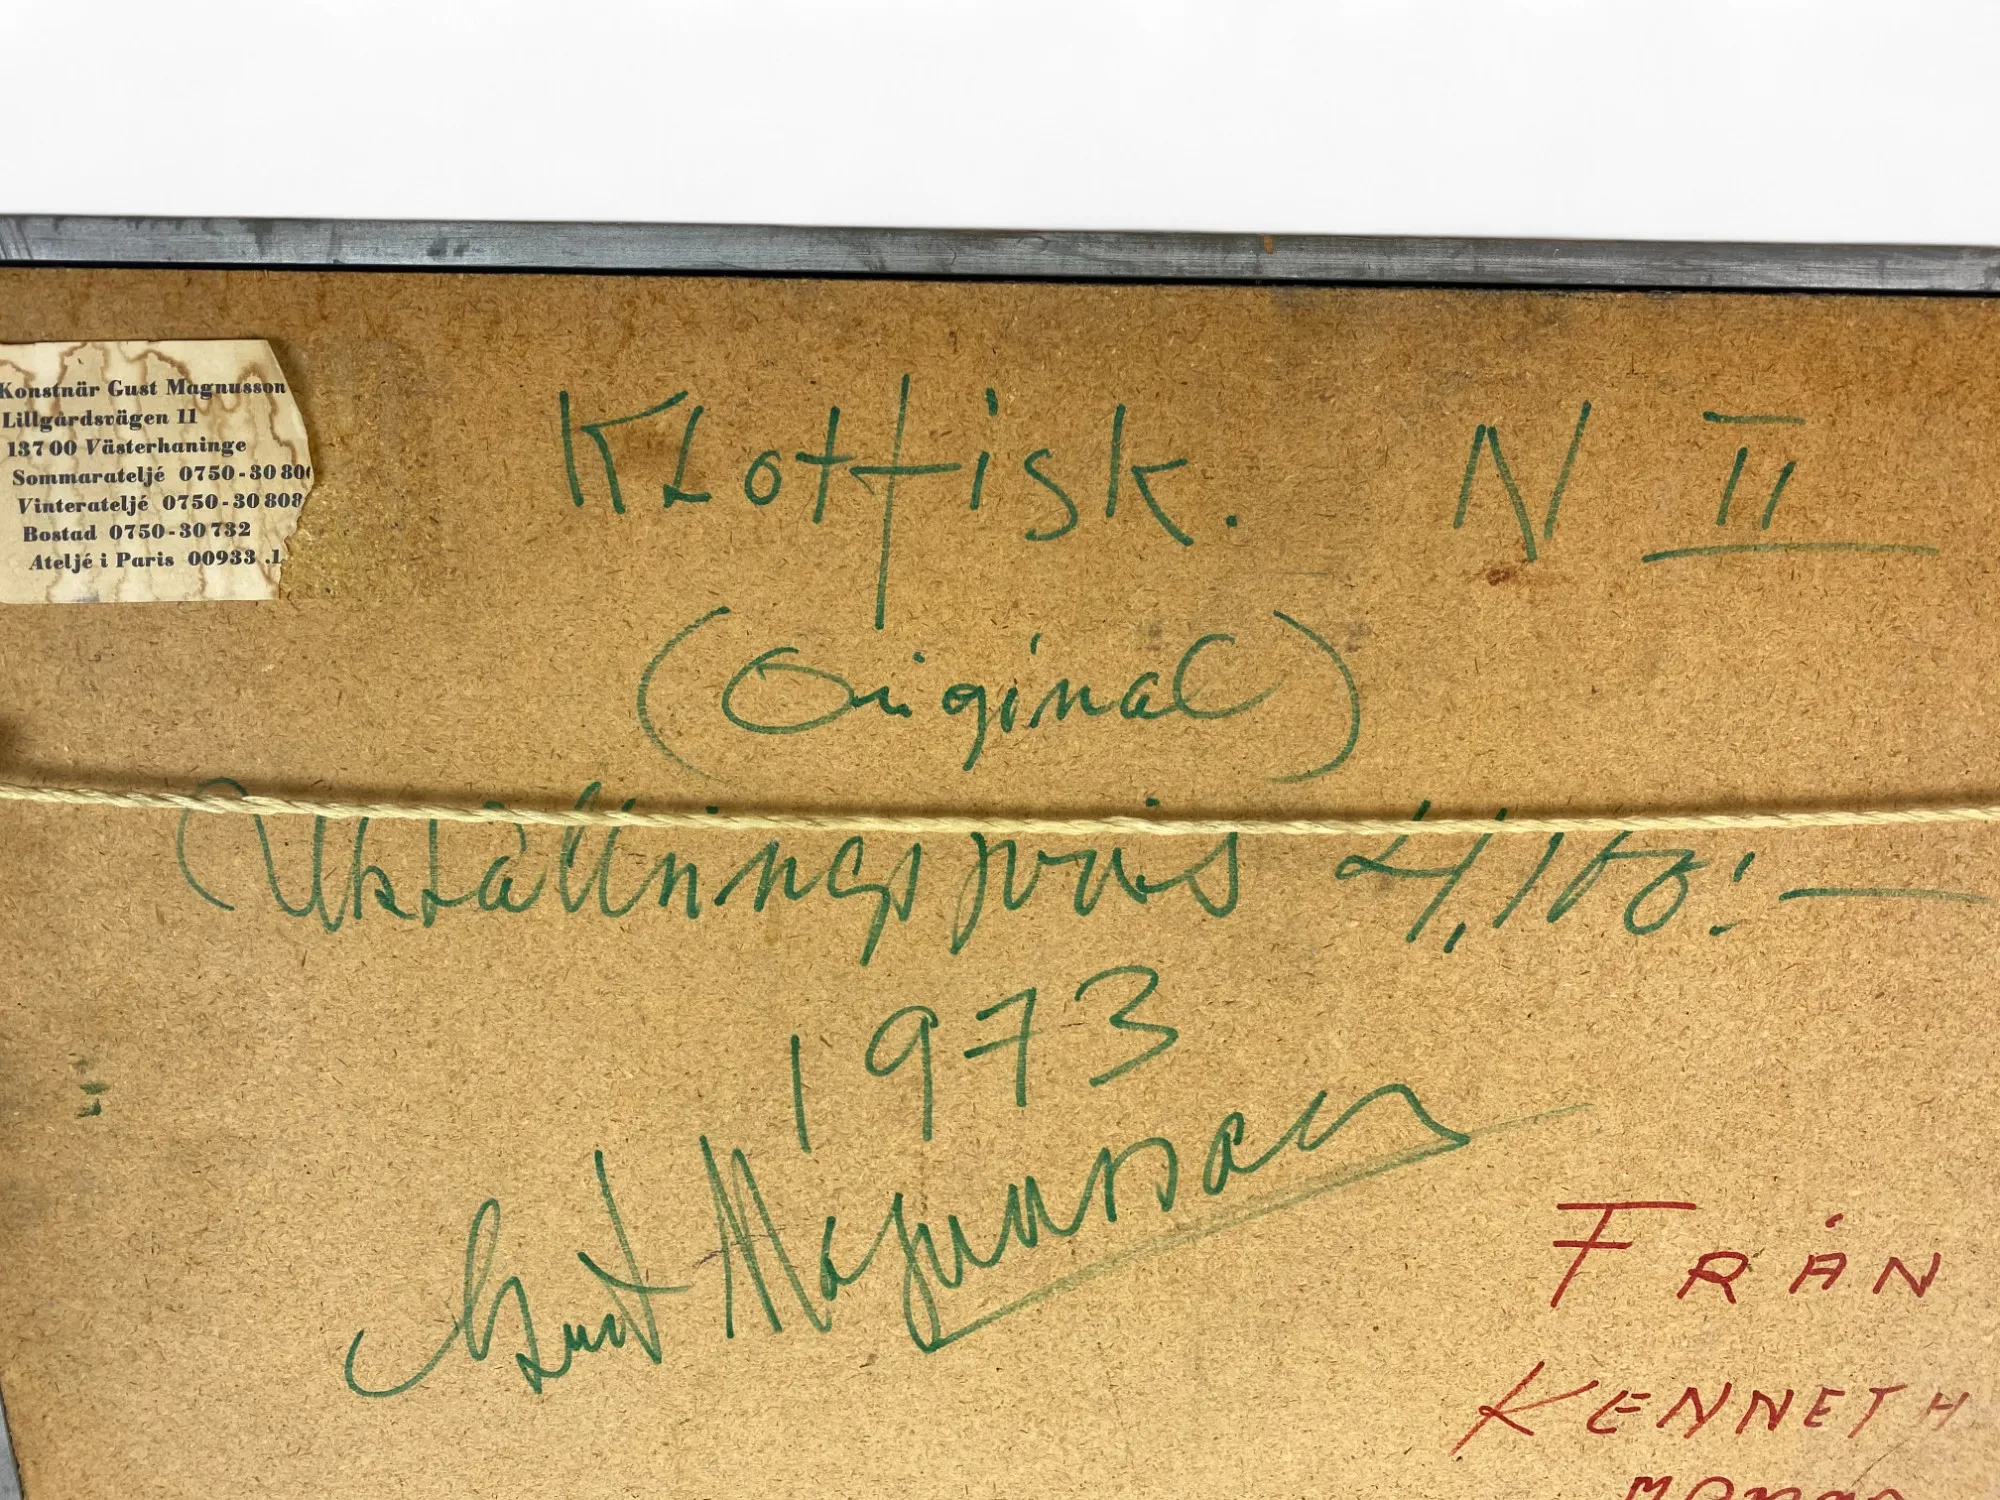 Konstnär Gust Magnusson
Lillgårdsvägen 11
137 00 Västerhaninge
Sommarateljé 0750-30 80
Vinterateljé 0750-30 808
Bostad 0750-30 732
Ateljé i Paris 00933 .1
Klottisk. N II
(Original)
Utställningspris 4,100:—
1973
Gust Magnusson
FRÅN
KENNETH